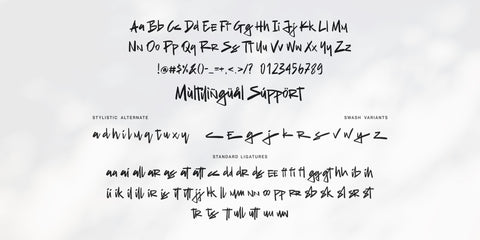 Aa Bb Cc Dd Ee Ff Gg Hh Ii Jj Kk Ll Mm
Nn Oo Pp Qq Rr Ss Tt Uu Vv Ww Xx Yy Zz
!@#$%&()-_=+,<.>/? 0123456789
Multilingual Support
STYLISTIC ALTERNATE
SWASH VARIANTS
a d h i l u q t u x y c e g j k r s v w y z
STANDARD LIGATURES
aa ai all ar as at att cc dd dr ds ee ff fi fl gg gt hh ib ih
ii ik il ill ir is it itt jj kk ll mm nn oo pp rr sb sk sl sr st
tr ts tt ull utt uu nw